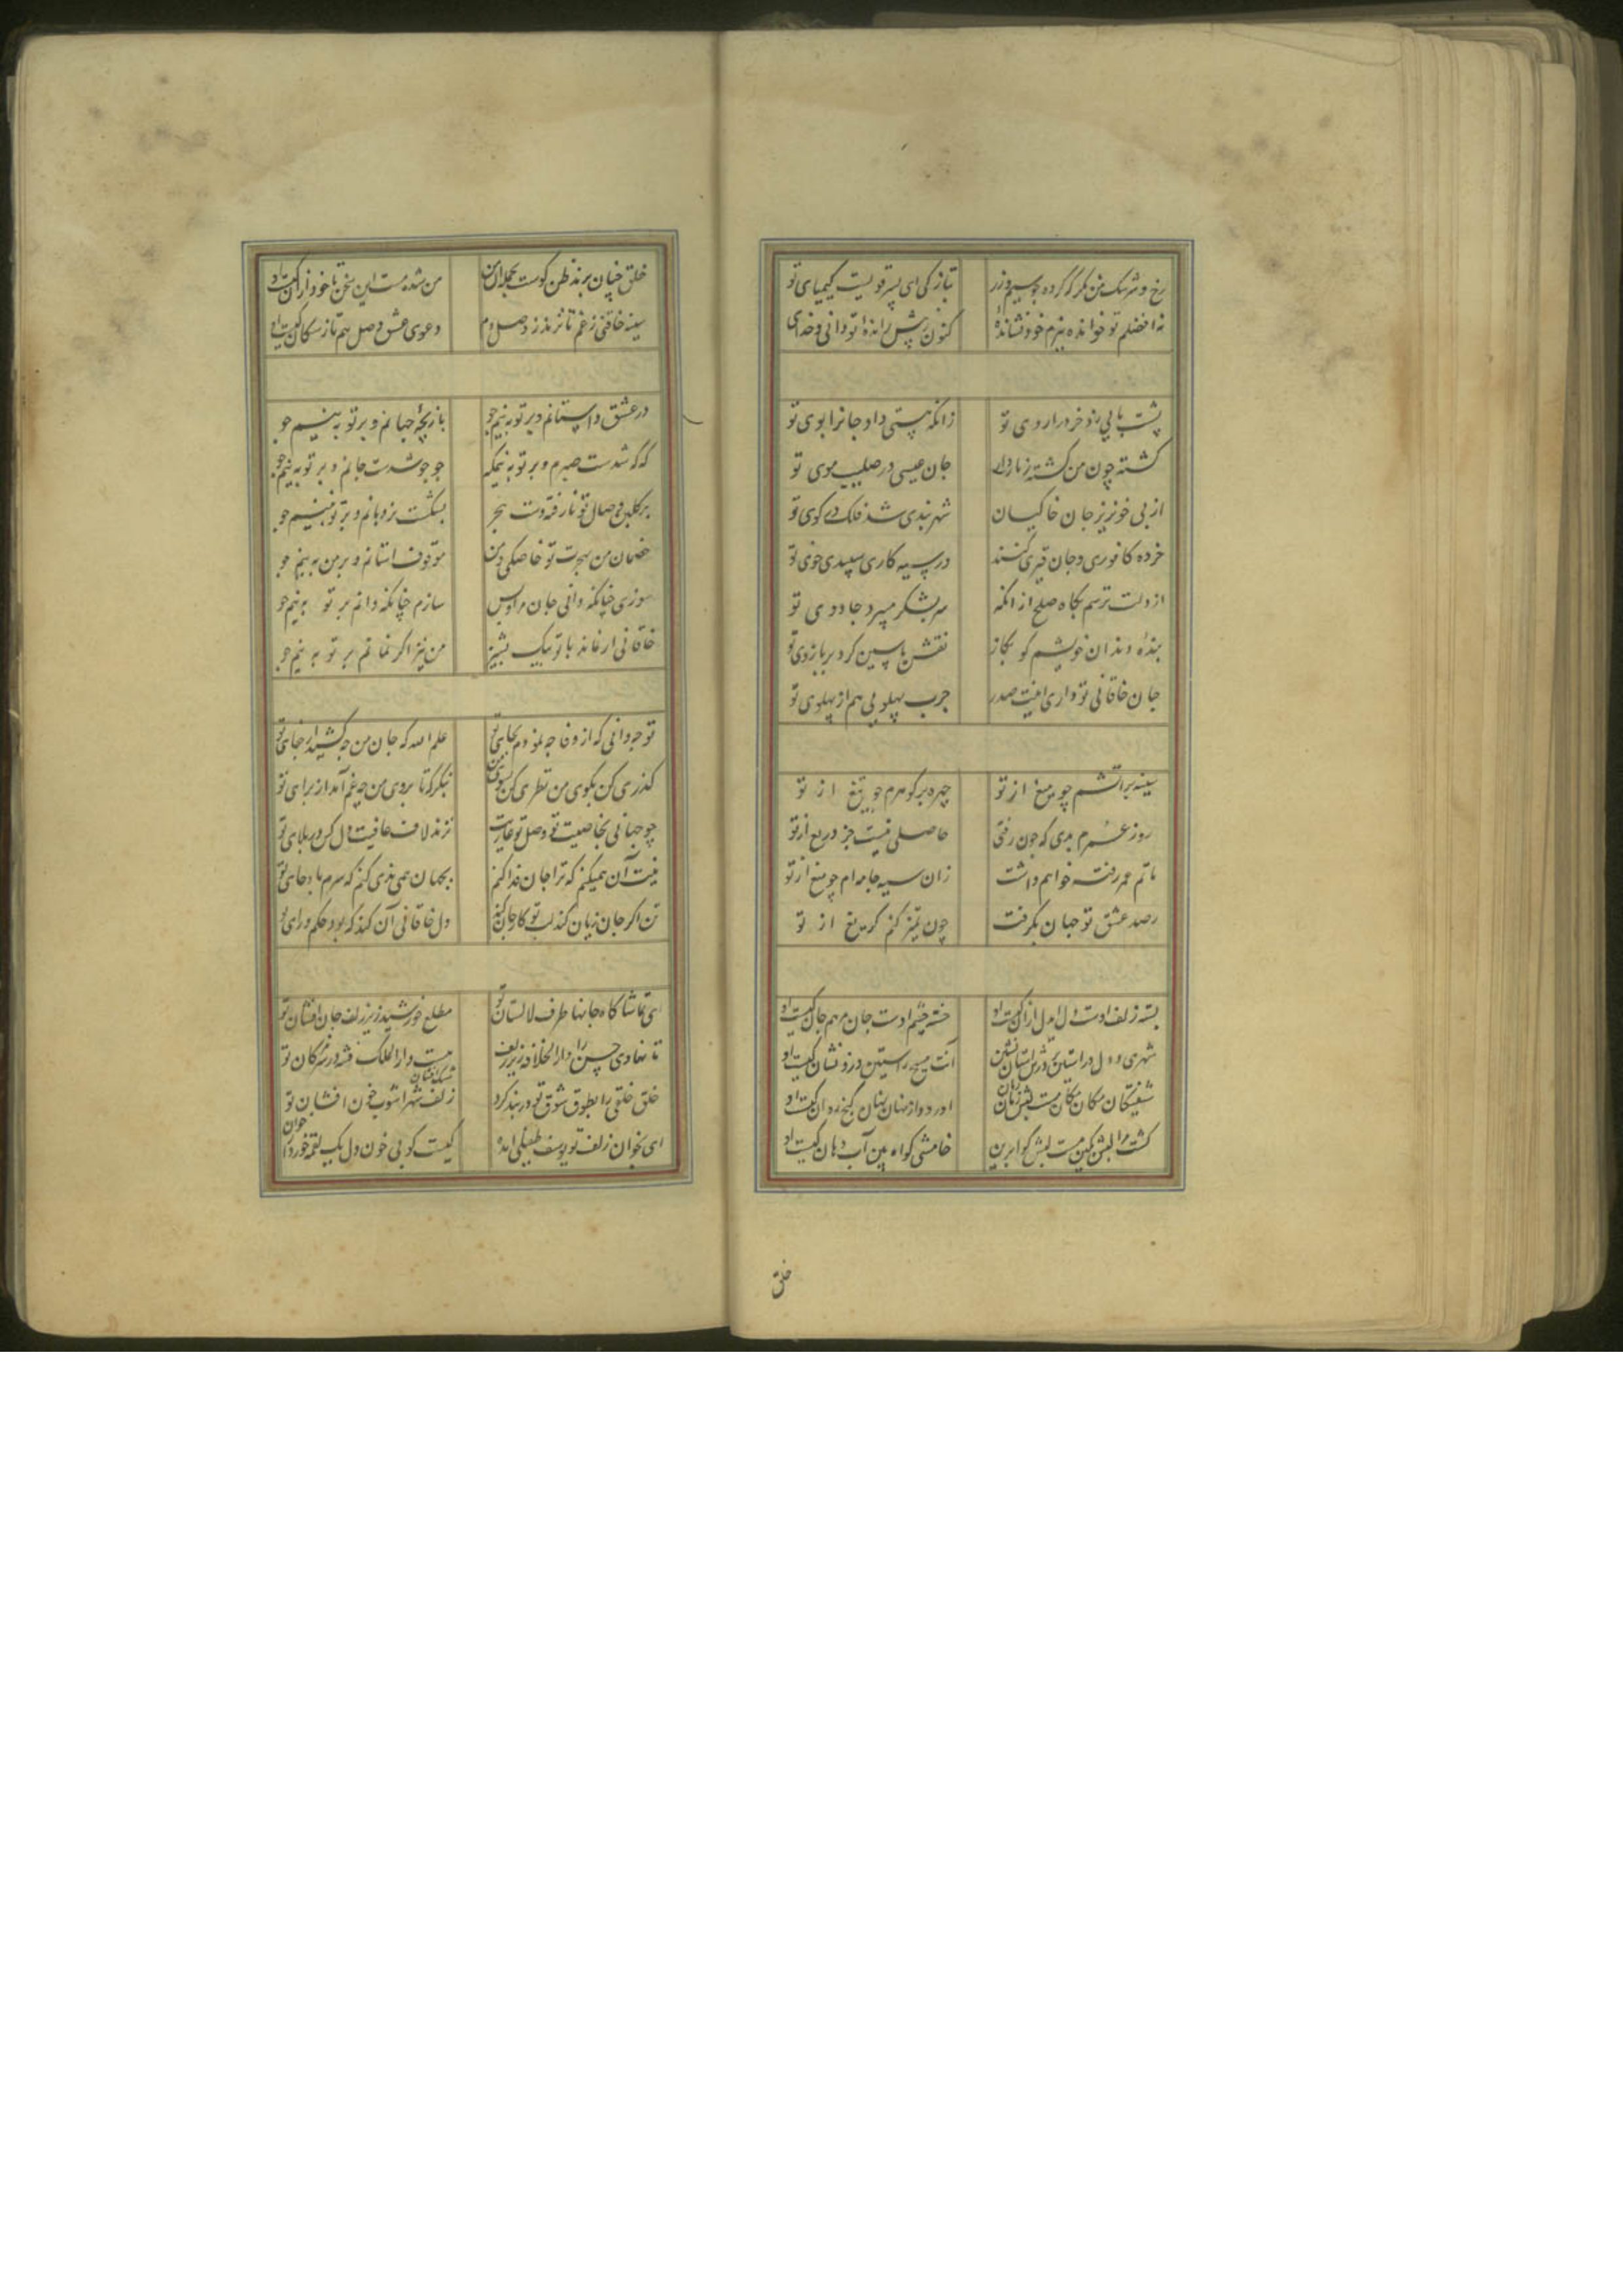 رخ و سرشک من نکر که کرده چو سیم و زر
تبازکی ای پسر قویست کیمیای تو
نه افضلم تو خوانده ببزم خود نشانده
کنون ز پیش رانده تو دانی و خدای
پشت پایی زد خرد را روی تو
زانکه هستی داد جانرا بوی تو
کشته چون من کشته زنار دار
جان عیسی در صلیب موی تو
از پی خونریز جان خاکیان
شهر بندی شد فلک در کوی تو
خرده کافوری و جان قیری کنند
در سپیه کاری سپیدی خوی تو
از دلت ترسم بکاه صلح از انکه
سر بشکر میبرد جادوی تو
بنده دندان خویشم کو بکاز
نقش یاسین کرد بر بازوی تو
جان خاقانی تو داری اینت صدر
چرب پهلویی هم از پهلوی تو
سینه پر آتشم چو میغ از تو
چهره پر کوهرم چو تیغ از تو
روز عمرم بدی که چون رفتی
حاصلی نیست جز دریغ از تو
ماتم عمر رفته خواهم داشت
زان سیه جامه ام چو میغ از تو
رصد عشق تو جهان بکرفت
چون تمیز کنم کریغ از تو
بسته زلف اوست دل ای دل از آن کیست او
خسته چشم اوست جان مرهم جان کیست او
شهری و دل در آستین بر درش آستان نشین
آنت مسیح راستین درد نشان کیست او
شیفتکان مکان مکان مست لبش زمان زمان
او ز دو از نهان نهان کنج روان کیست او
کشت مرا لبش بکین هست لبش کوا برین
خامشی کواه بین آب دهان کیست او
خلق
خلق چنان برند ظن کوست بجمله آن من
من شده مست این سخن تا خود از آن کیست او
سینه خاقنی ز غم تا نزند ز وصل دم
دعوی عشق و وصل هم تاز سکان کیست او
در عشق داستانم و بر تو به نیم جو
بازیچه جهانم و بر تو به نیم جو
که که شدست صبرم و بر تو به نیم که
جو جو شدست جانم و بر تو به نیم جو
بر کلبن وصال تو نارفته دست هجر
بشکست نردبانم و بر تو به نیم جو
خصمان من بهجرت تو خاصکی و من
موقوف استانم و بر من به نیم جو
سوزی چنانکه دانی جان مرا و بس
سازم چنانکه دانم بر تو به نیم جو
خاقانی ار نماند با تو بیک پشیز
من نیز اکر نمانم بر تو به نیم جو
تو چه دانی که از وفا چه نمودم بجای تو
علم الله که جان من چه کشید از جفای تو
کذری کن بکوی من نظری کن بسوی من
بنکر تا بروی من چه غم آمد از برای تو
چو جهانی بخاصیت تو وصل تو عاریت
نزند لاف عافیت دل کس در بلای تو
نیت آن همیکنم که ترا جان فدا کنم
بجهان من بدی کنم که سرم باد جای تو
تن اکر جان زیان کند لب تو کار جان کند
دل خاقانی آن کند که بود حکم و رای تو
ای تماشا کاه جانها طرف لالستان تو
مطلع خورشید زیر زلف جان افشان تو
تا نهادی حسن را دار الخلافه زیر زلف
هست دار الملک فتنه در سر مژکان تو
خلق خلقی را بطوق شوق تو در بند کرد
زلف شهر اشوب خون افشان تو
مشک افشان
ای بخوان زلف تو یوسف طفیلی امده
کیست کو بی خون دل یک لقمه خورد از خوان